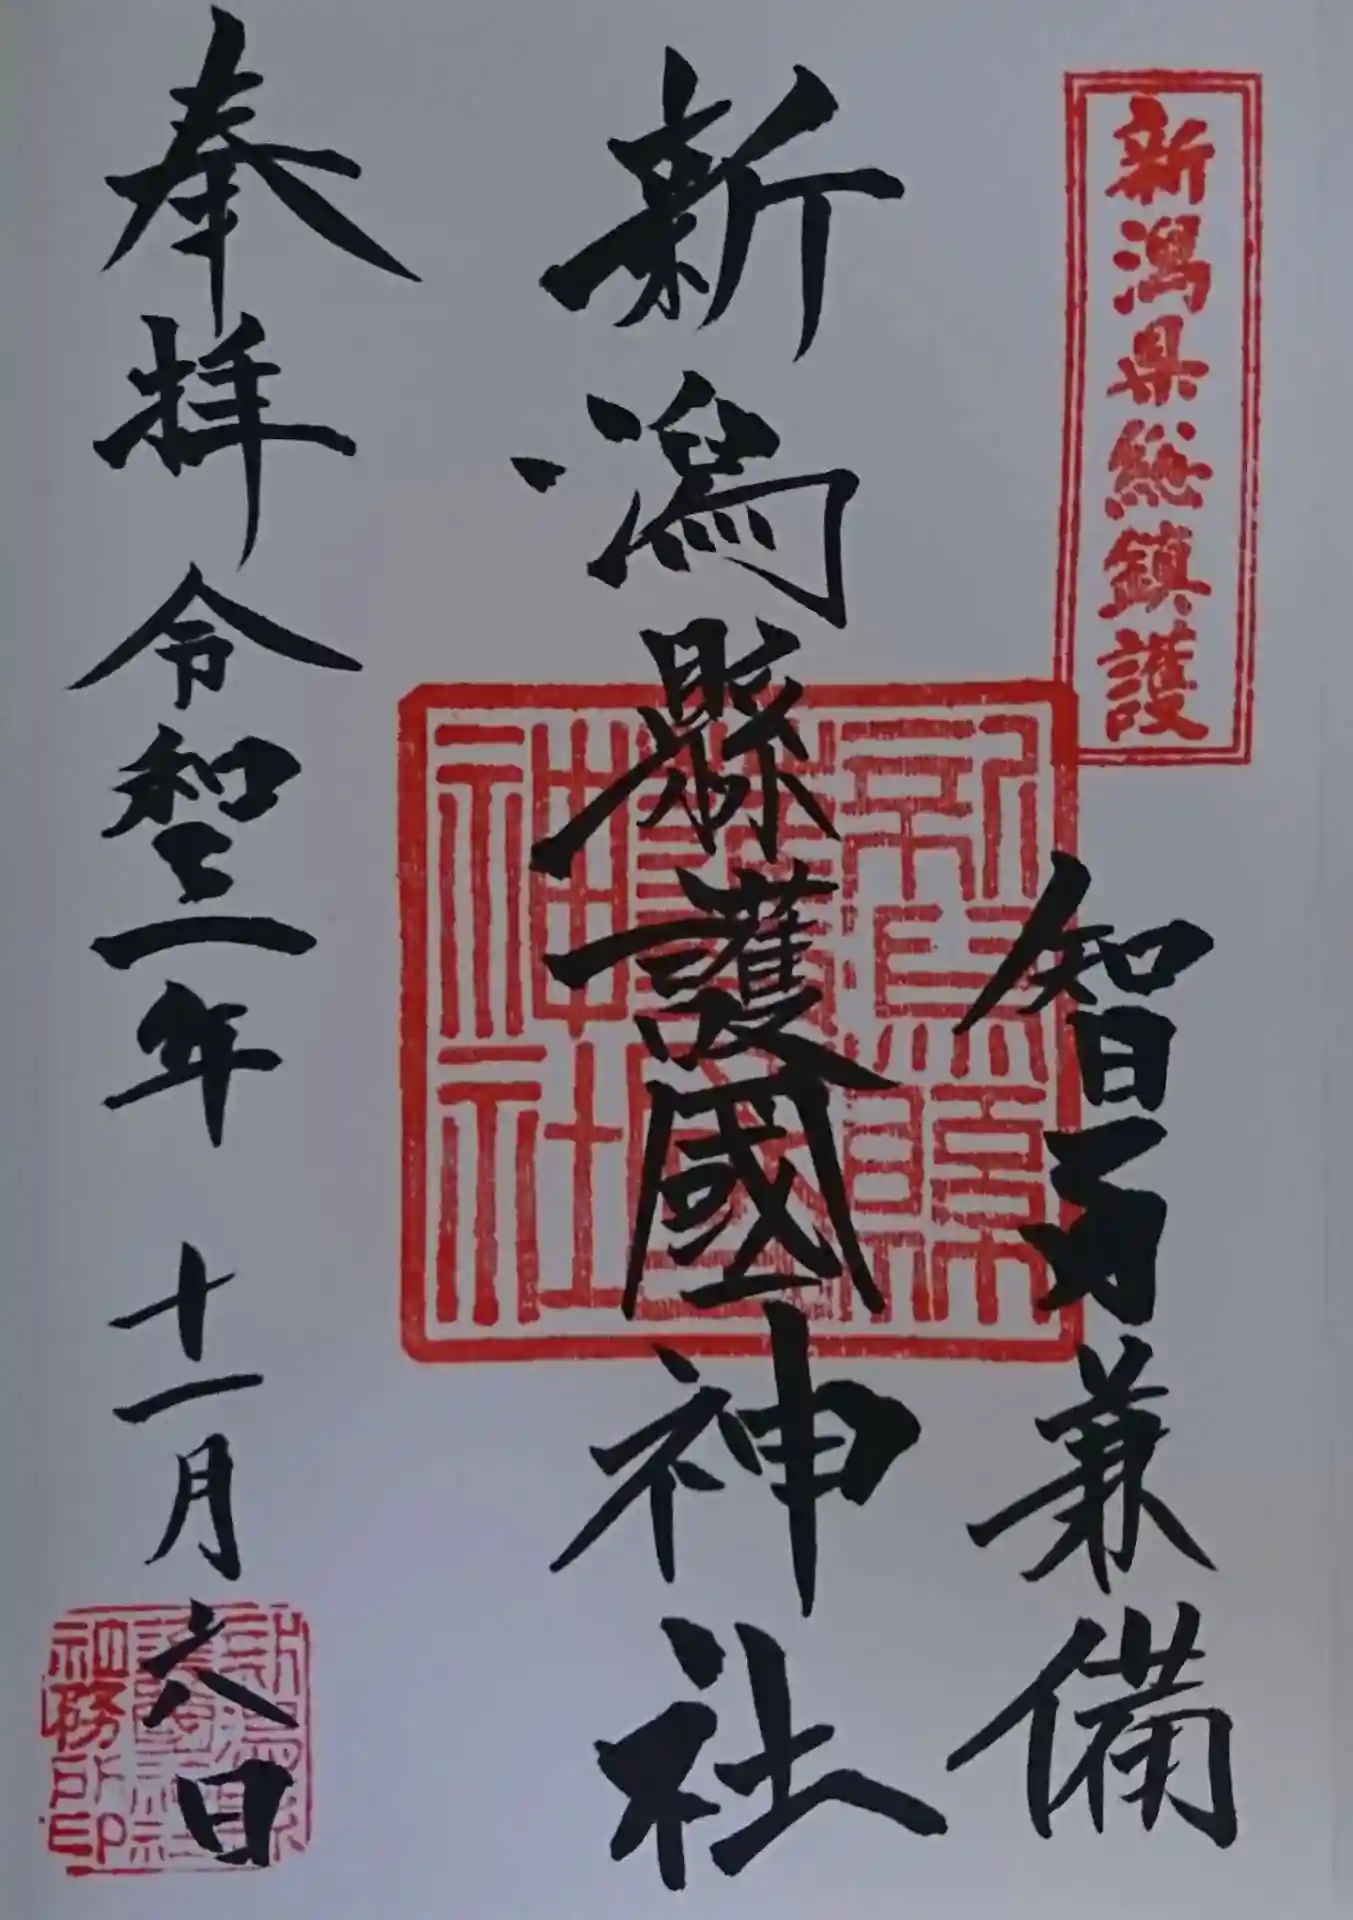 新潟県総鎮護
智勇兼備
新潟縣護國神社
新潟縣
護國
神社
奉拝 令和三年 十一月六日
新潟縣
護國神社
社務所印